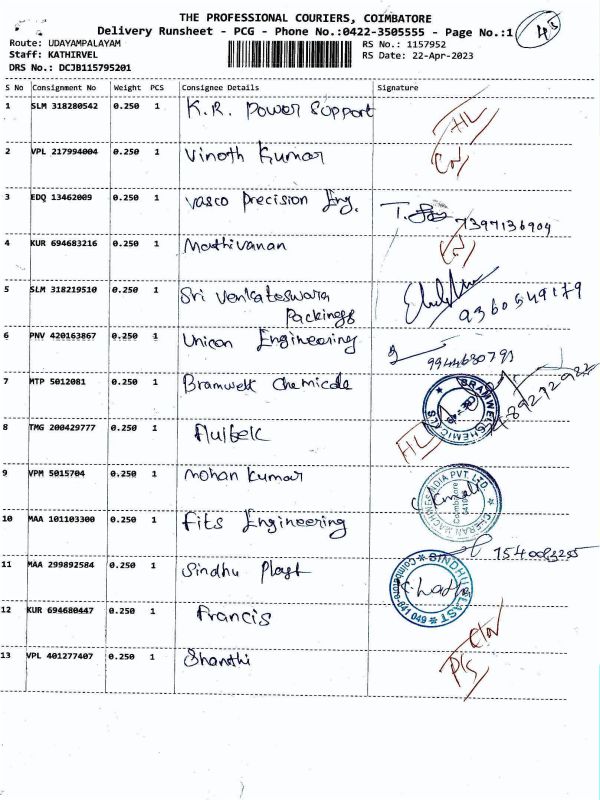 THE PROFESSIONAL COURIERS, COIMBATORE
Delivery Runsheet - PCG - Phone No.:0422-3505555 - Page No.:1
45
Route: UDAYAMPALAYAM
RS No.: 1157952
Staff: KATHIRVEL
RS Date: 22-Apr-2023
DRS No.: DCJB115795201
S No Consignment No Weight PCS Consignee Details Signature
1 SLM 318280542 0.250 1 K.R. Power Support HL
2 VPL 217994004 0.250 1 Vinoth Kumar
3 EDQ 13462009 0.250 1 Vasco Precision Eng. 7397136904
4 KUR 694683216 0.250 1 Mathivanan
5 SLM 318219510 0.250 1 Sri Venkateswara
Packings 9360549179
6 PNV 420163867 0.250 1 Unicon Engineering 9944680791
7 MTP 5012081 0.250 1 BRAMWEL CHEMICALS
8 TMG 200429777 0.250 1 HL
9 VPM 5015704 0.250 1 Mohan Kumar INDIA PVT. LTD.
Coimbatore
10 MAA 101103300 0.250 1 Fits Engineering
11 MAA 299892584 0.250 1 Sindhu Plast SINDHU PLAST Coimbatore-641 049
12 KUR 694680447 0.250 1 Francis
13 VPL 401277407 0.250 1 Shanthi